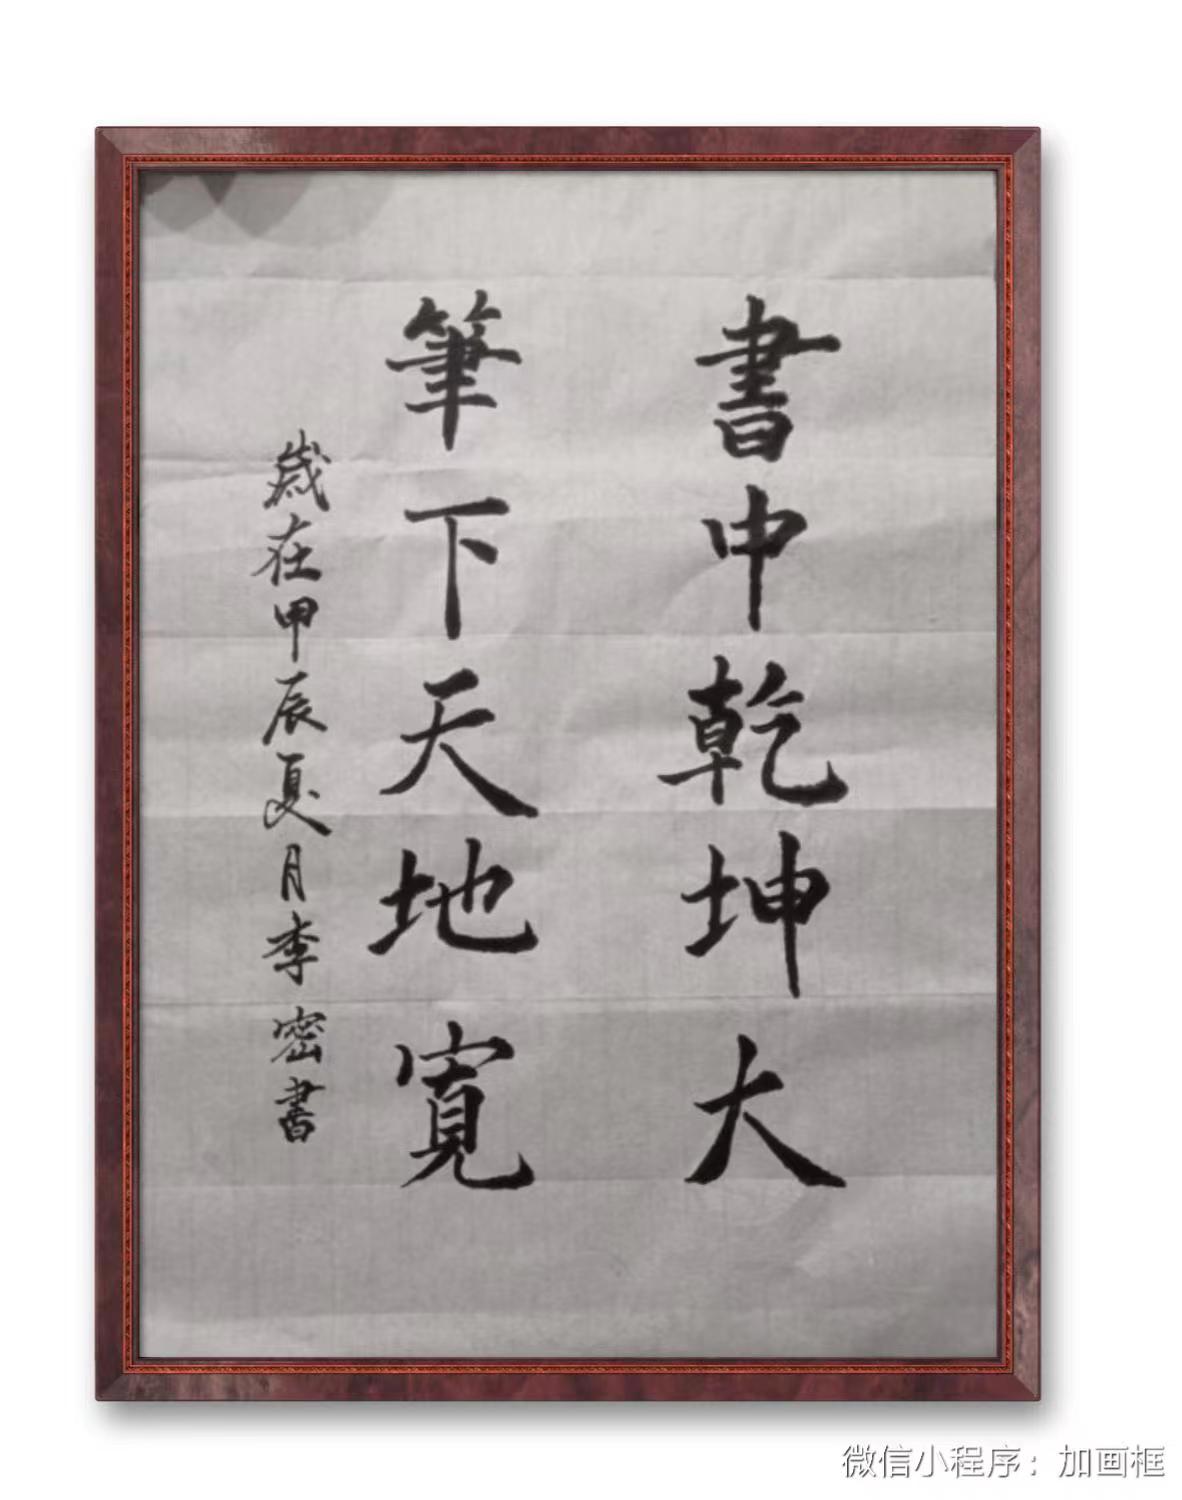 書中乾坤大
筆下天地寬
歲在甲辰夏月李密書
微信小程序：加画框